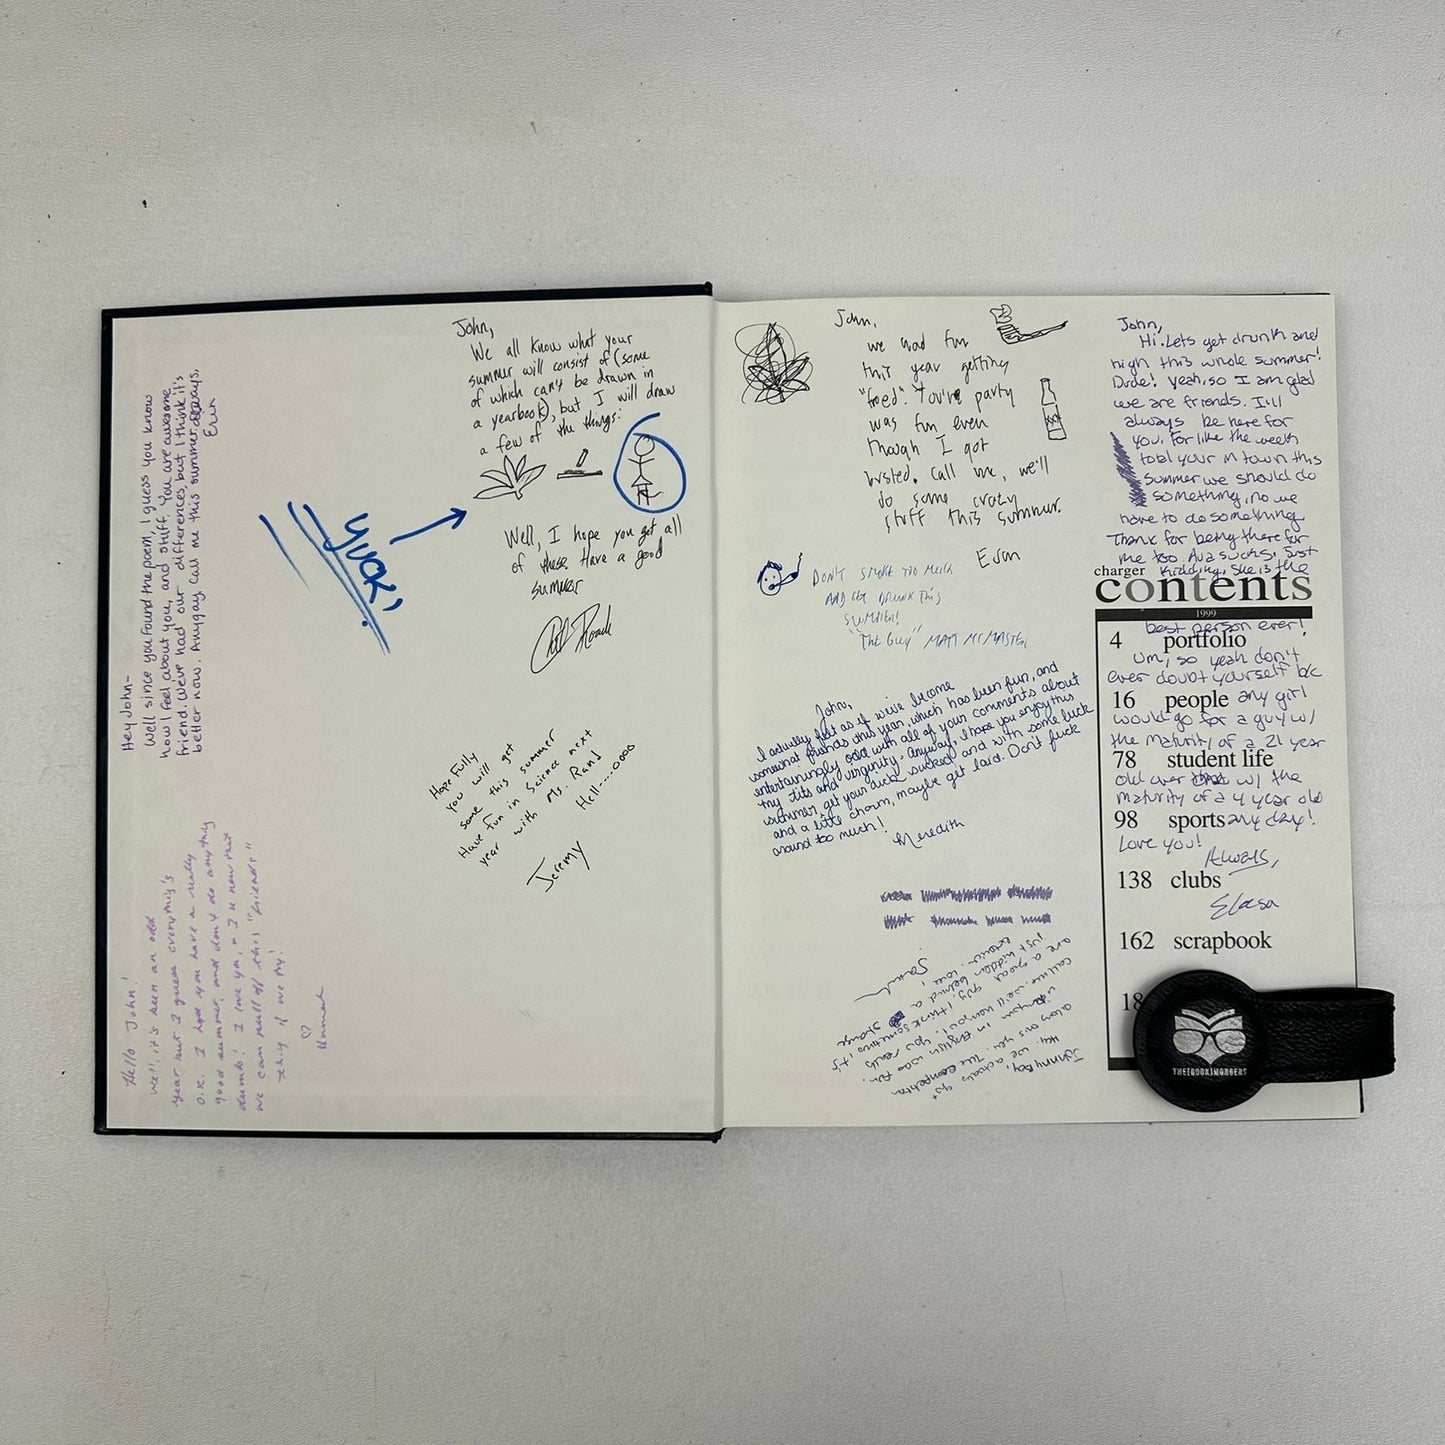 John,
We all know what your
summer will consist of (some
of which can't be drawn in
a yearbook), but I will draw
a few of the things:
Well, I hope you get all
of these Have a good
summer
YUCK,
Hey John-
Well since you found the poem, I guess you know
how I feel about you, and stuff. You are awesome
friend. We've had our differences, but I think it's
better now. Anygay call me this summer
Erin
Hopefully
you will get
some this summer
Have fun in Science next
year with Ms. Rand
Hell---oooo
Jeremy
Hello John!
Well, it's been an odd
year but I guess everything's
o.k. I hope you have a really
good summer, and don't do anything
dumb! I love you, + I know that
we can pull off this "friends"
thing if we try!
♡
Hannah
John,
we had fun
this year getting
You're party
was fun even
though I got
busted. Call me, we'll
do some crazy
stuff this summer.
Evan
DON'T SMOKE TOO MUCH
AND GET DRUNK THIS
SUMMER!
"THE GUY" MATT MCMASTER
John,
I actually felt as if we've become
somewhat friends this year, which has been fun, and
entertainingly odd with all of your comments about
my tits and virginity. Anyway, I hope you enjoy this
summer, get your dick sucked and with some luck
and a little charm, maybe get laid. Don't fuck
around too much!
Meredith
Johnny Boy,
Hey. We actually got
along this year. The competition
between you in English was fun.
call me. We'll hang out. You really
are a great guy. I think sometimes it's
just hidden behind a strange
exterior. Love,
Sarah
John,
Hi. Lets get drunk and
high this whole summer!
Dude! Yeah, so I am glad
we are friends. I'll
always be here for
you. For like the week
total your in town this
summer we should do
something, no we
have to do something
Thank for being there for
me too. Ava sucks, Just
kidding, she is the
charger
contents
1999
best person ever!
4 portfolio
Um, so yeah don't
ever doubt yourself b/c
16 people any girl
would go for a guy w/
the maturity of a 21 year
78 student life
old over w/ the
maturity of a 4 year old
98 sports any day!
Love you!
Always,
138 clubs
Elesa
162 scrapbook
18
THEBOOKIMONGERS